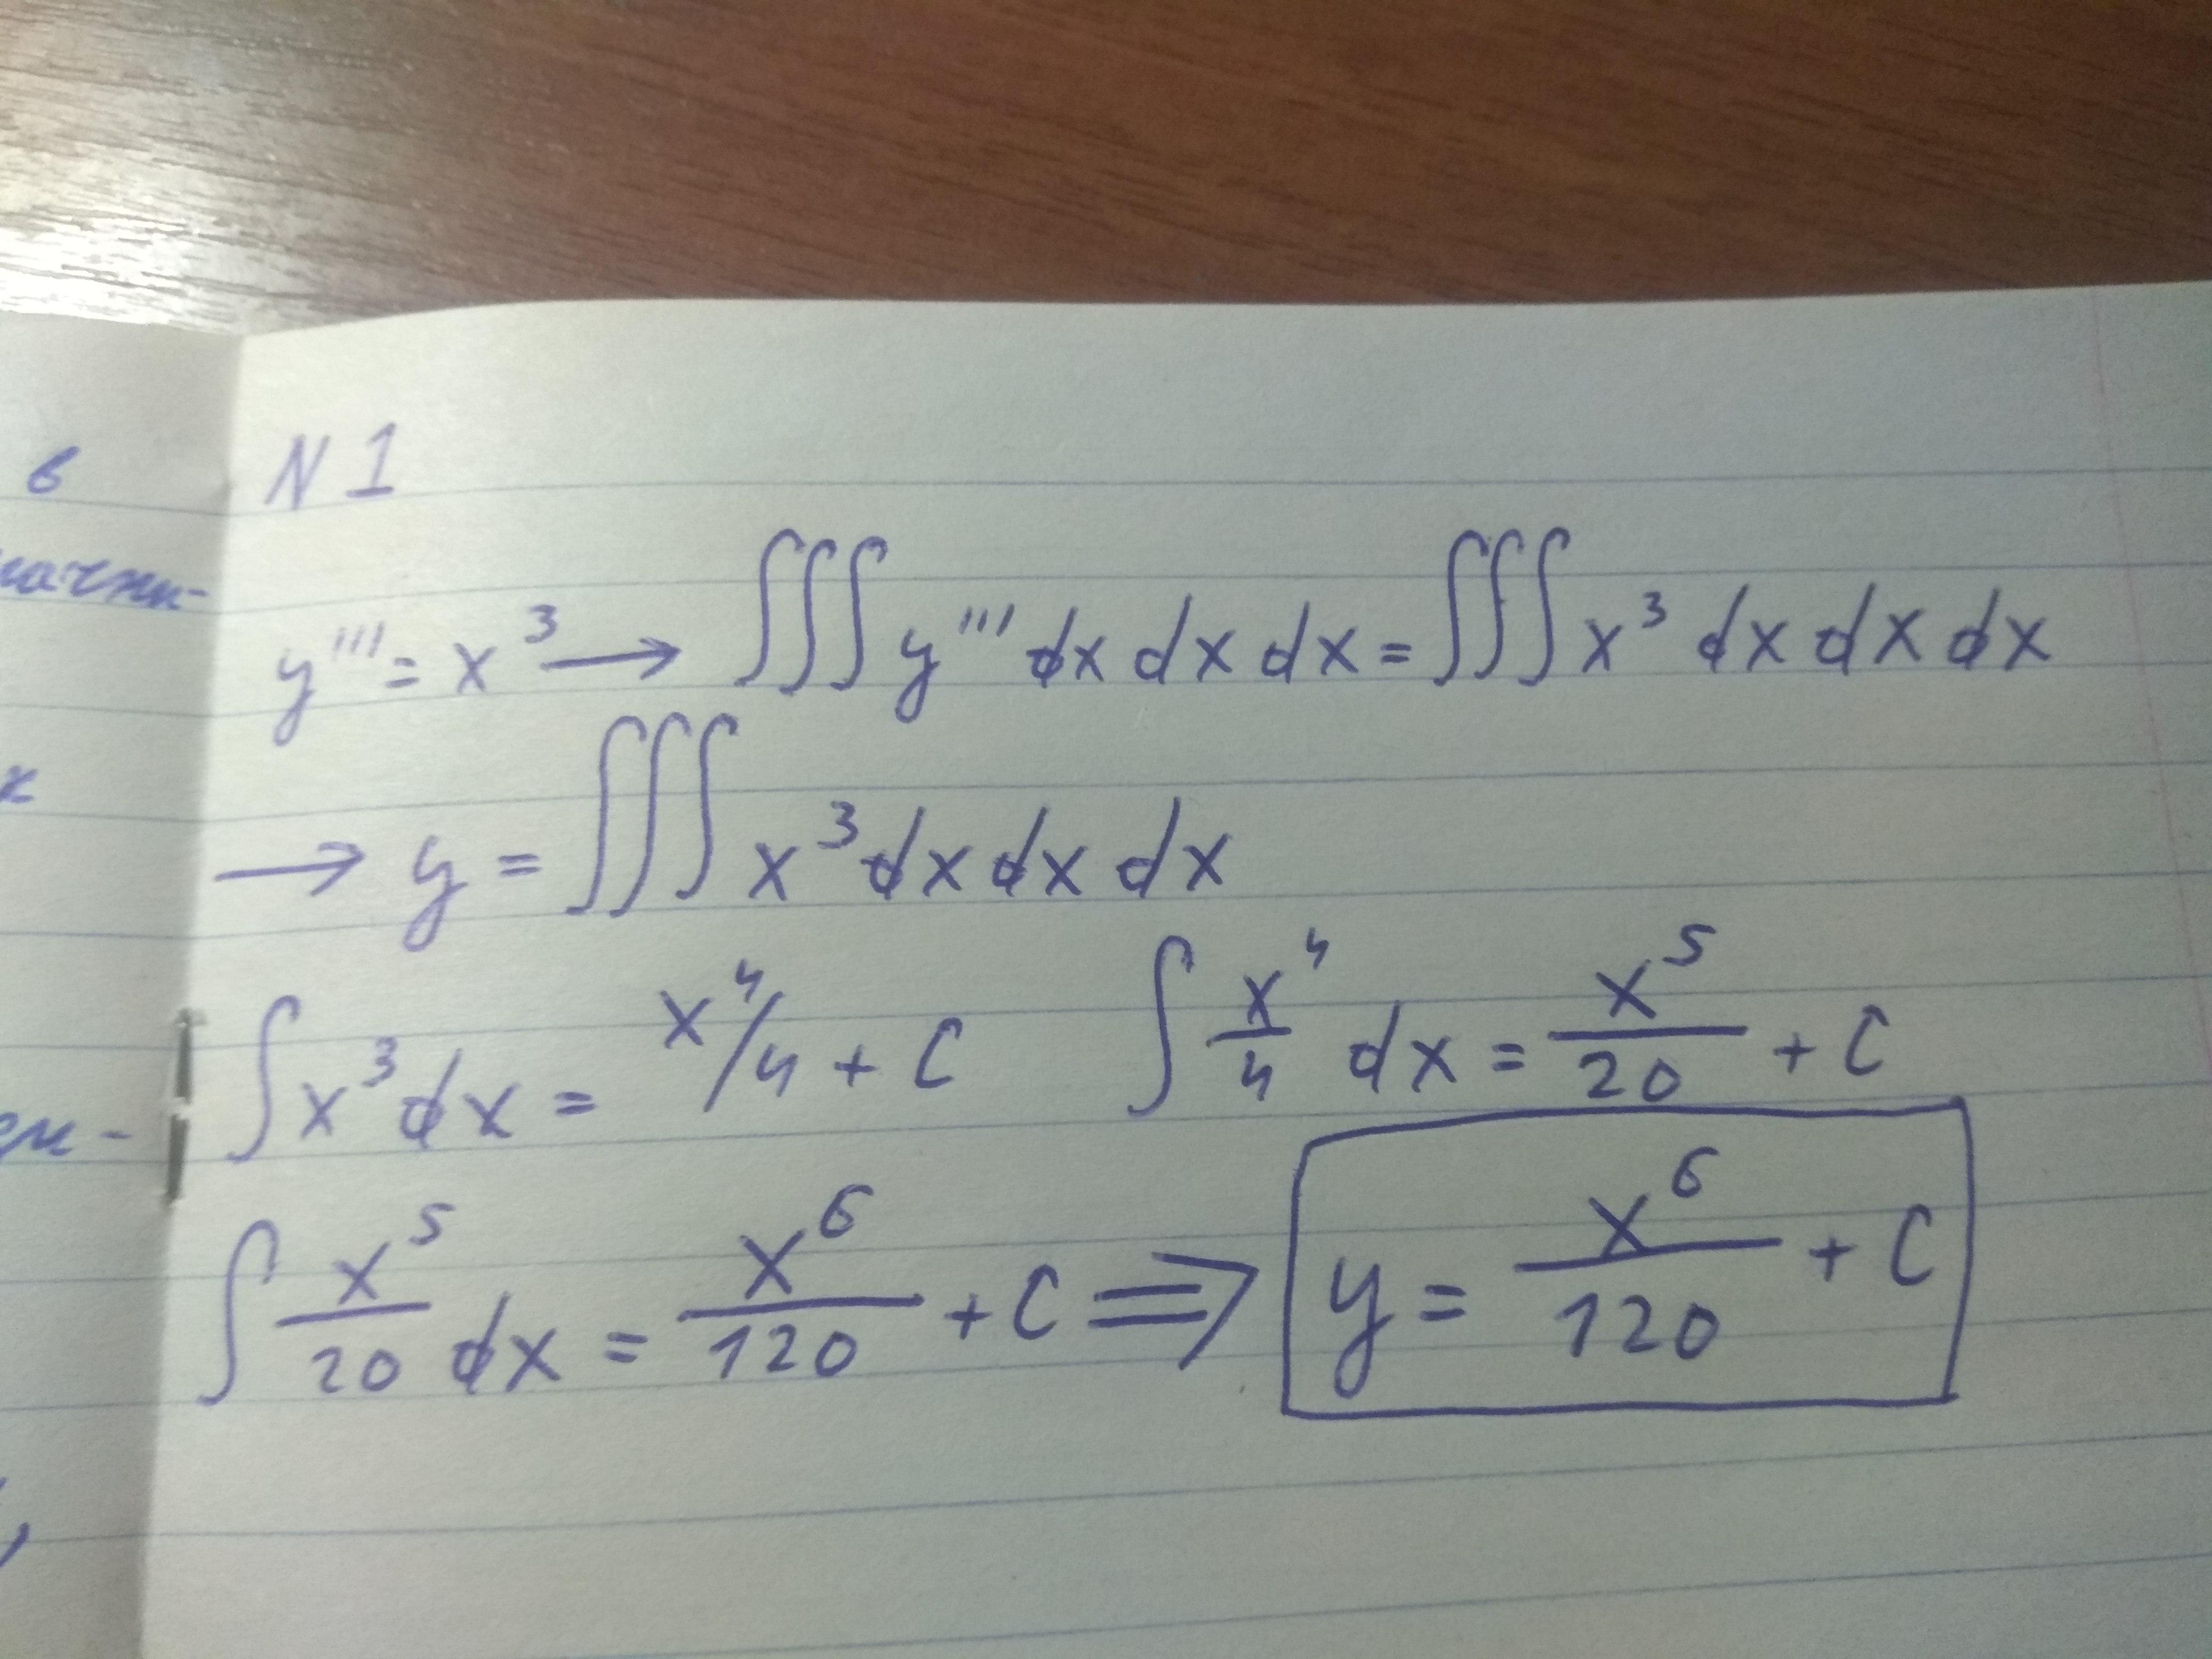 в
N 1
y''' = x³ → ∫∫∫ y''' dx dx dx = ∫∫∫ x³ dx dx dx
→ y = ∫∫∫ x³ dx dx dx
∫ x³ dx = x⁴/4 + C ∫ x⁴/4 dx = x⁵/20 + C
∫ x⁵/20 dx = x⁶/120 + C ⇒ y = x⁶/120 + C